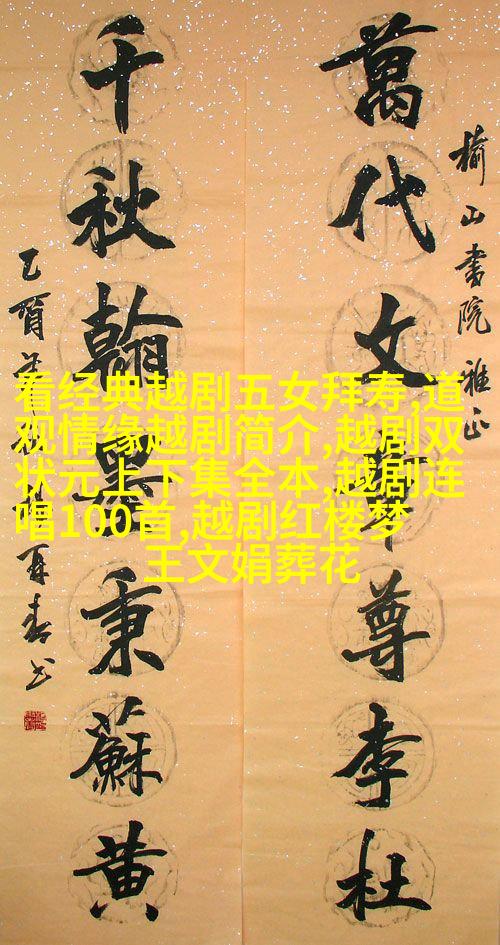 榆山書院雅正
萬代文章尊李杜
千秋翰墨秉蘇黄
看经典越剧五女拜寿,道
观情缘越剧简介,越剧双
状元上下集全本,越剧连
唱100首,越剧红楼梦
王文娟葬花